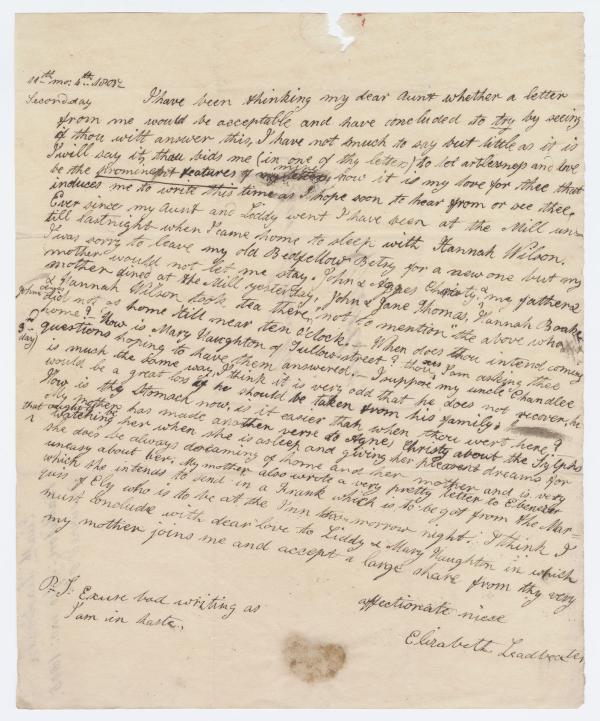 11th mo: 4th
Second day I have been thinking my dear Aunt whether a letter
from me would be acceptable and have concluded to try by seeing
if thou wilt answer this, I have not much to say but little as it is
I will say it, thou bids me (in one of thy letters) to let artlessness and love
be the prominent features of my letters now it is my love for thee that
induces me to write this time as I hope soon to hear from or see thee.
Ever since my Aunt and Liddy went I have been at the Mill un-
till last night when I came home to sleep with Hannah Wilson.
I was sorry to leave my old Bedfellow Betsy for a new one but my
mother would not let me stay. John & Agnes Christy & my father &
mother dined at the Mill yesterday, John & Jane Thomas, Hannah Boake
& Hannah Wilson took tea there, not to mention the above who
did not come home till near ten o'clock. When does thou intend coming
home? How is Mary Naughton of Tullow street? thou sees I am asking thee
questions hoping to have them answered. I suppose my uncle Chandlee
is much the same way, I think it is very odd that he does not recover, he
would be a great loss if he should be taken from his family.
How is thy Stomach now, is it easier than when thou wert here?
My mother has made another verse to Agnes Christy about the Sylphs
that ought to be watching her when she is asleep and giving her pleasant dreams for
she does be always dreaming of home and her mother and is very
uneasy about her. My mother also wrote a very pretty letter to Ebenezer
which she intends to send in a Frank which is to be got from the Mar-
quis of Ely who is to be at the Inn tomorrow night. I think I
must conclude with dear love to Liddy & Mary Naughton in which
my mother joins me and accept a large share from thy very
affectionate niece
Elizabeth Leadbeater
P.S. Excuse bad writing as
I am in haste.